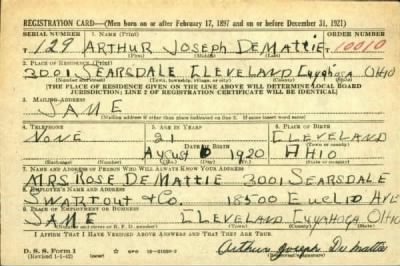 REGISTRATION CARD—(Men born on or after February 17, 1897 and on or before December 31, 1921)
SERIAL NUMBER 1. NAME (Print) ORDER NUMBER
T 129 ARTHUR JOSEPH DEMATTIE T 10010
(First) (Middle) (Last)
2. PLACE OF RESIDENCE (Print)
3001 SEARSDALE CLEVELAND CUYAHOGA OHIO
(Number and street) (Town, township, village, or city) (County) (State)
[THE PLACE OF RESIDENCE GIVEN ON THE LINE ABOVE WILL DETERMINE LOCAL BOARD
JURISDICTION; LINE 2 OF REGISTRATION CERTIFICATE WILL BE IDENTICAL]
3. MAILING ADDRESS
SAME
(Mailing address if other than place indicated on line 2. If same insert word same)
4. TELEPHONE 5. AGE IN YEARS 6. PLACE OF BIRTH
NONE 21 CLEVELAND
DATE OF BIRTH (Town or county)
AUGUST 6 1920 OHIO
(Exchange) (Number) (Mo.) (Day) (Yr.) (State or country)
7. NAME AND ADDRESS OF PERSON WHO WILL ALWAYS KNOW YOUR ADDRESS
MRS ROSE DEMATTIE 3001 SEARSDALE
8. EMPLOYER'S NAME AND ADDRESS
SWARTOUT & CO. 18500 EUCLID AVE
9. PLACE OF EMPLOYMENT OR BUSINESS
SAME CLEVELAND CUYAHOGA OHIO
(Number and street or R. F. D. number) (Town) (County) (State)
I AFFIRM THAT I HAVE VERIFIED ABOVE ANSWERS AND THAT THEY ARE TRUE.
D. S. S. Form 1
(Revised 1-1-42)
Arthur Joseph De Mattie